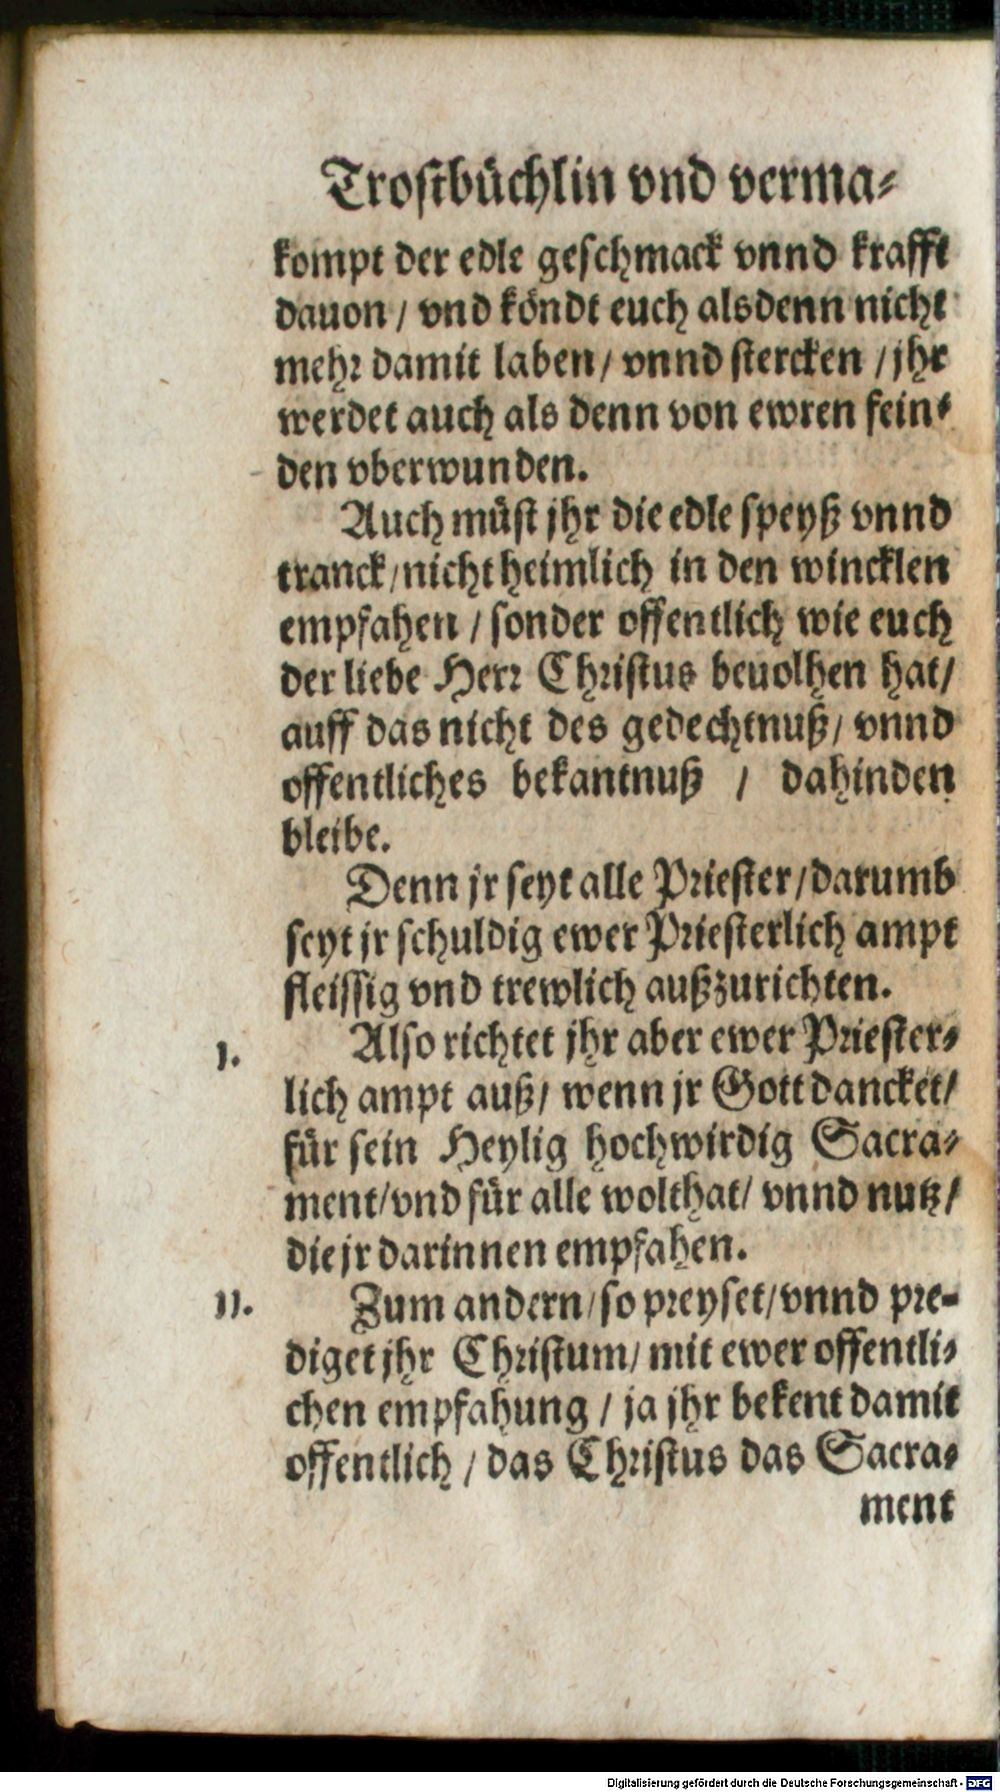 Trostbüchlin vnd verma-
kompt der edle geschmack vnnd krafft
dauon / vnd köndt euch alsdenn nicht
mehr damit laben / vnnd stercken / jhr
werdet auch als denn von ewren fein-
den vberwunden.
Auch müst jhr die edle speyß vnnd
tranck / nicht heimlich in den wincklen
empfahen / sonder offentlich wie euch
der liebe Herr Christus beuolhen hat /
auff das nicht des gedechtnuß / vnnd
offentliches bekantnuß / dahinden
bleibe.
Denn jr seyt alle Priester / darumb
seyt jr schuldig ewer Priesterlich ampt
fleissig vnd trewlich außzurichten.
j. Also richtet jhr aber ewer Priester-
lich ampt auß / wenn jr Gott dancket /
für sein Heylig hochwirdig Sacra-
ment / vnd für alle wolthat / vnnd nutz /
die jr darinnen empfahen.
jj. Zum andern / so preyset / vnnd pre-
diget jhr Christum / mit ewer offentli-
chen empfahung / ja jhr bekent damit
offentlich / das Christus das Sacra-
ment
Digitalisierung gefördert durch die Deutsche Forschungsgemeinschaft - DFG